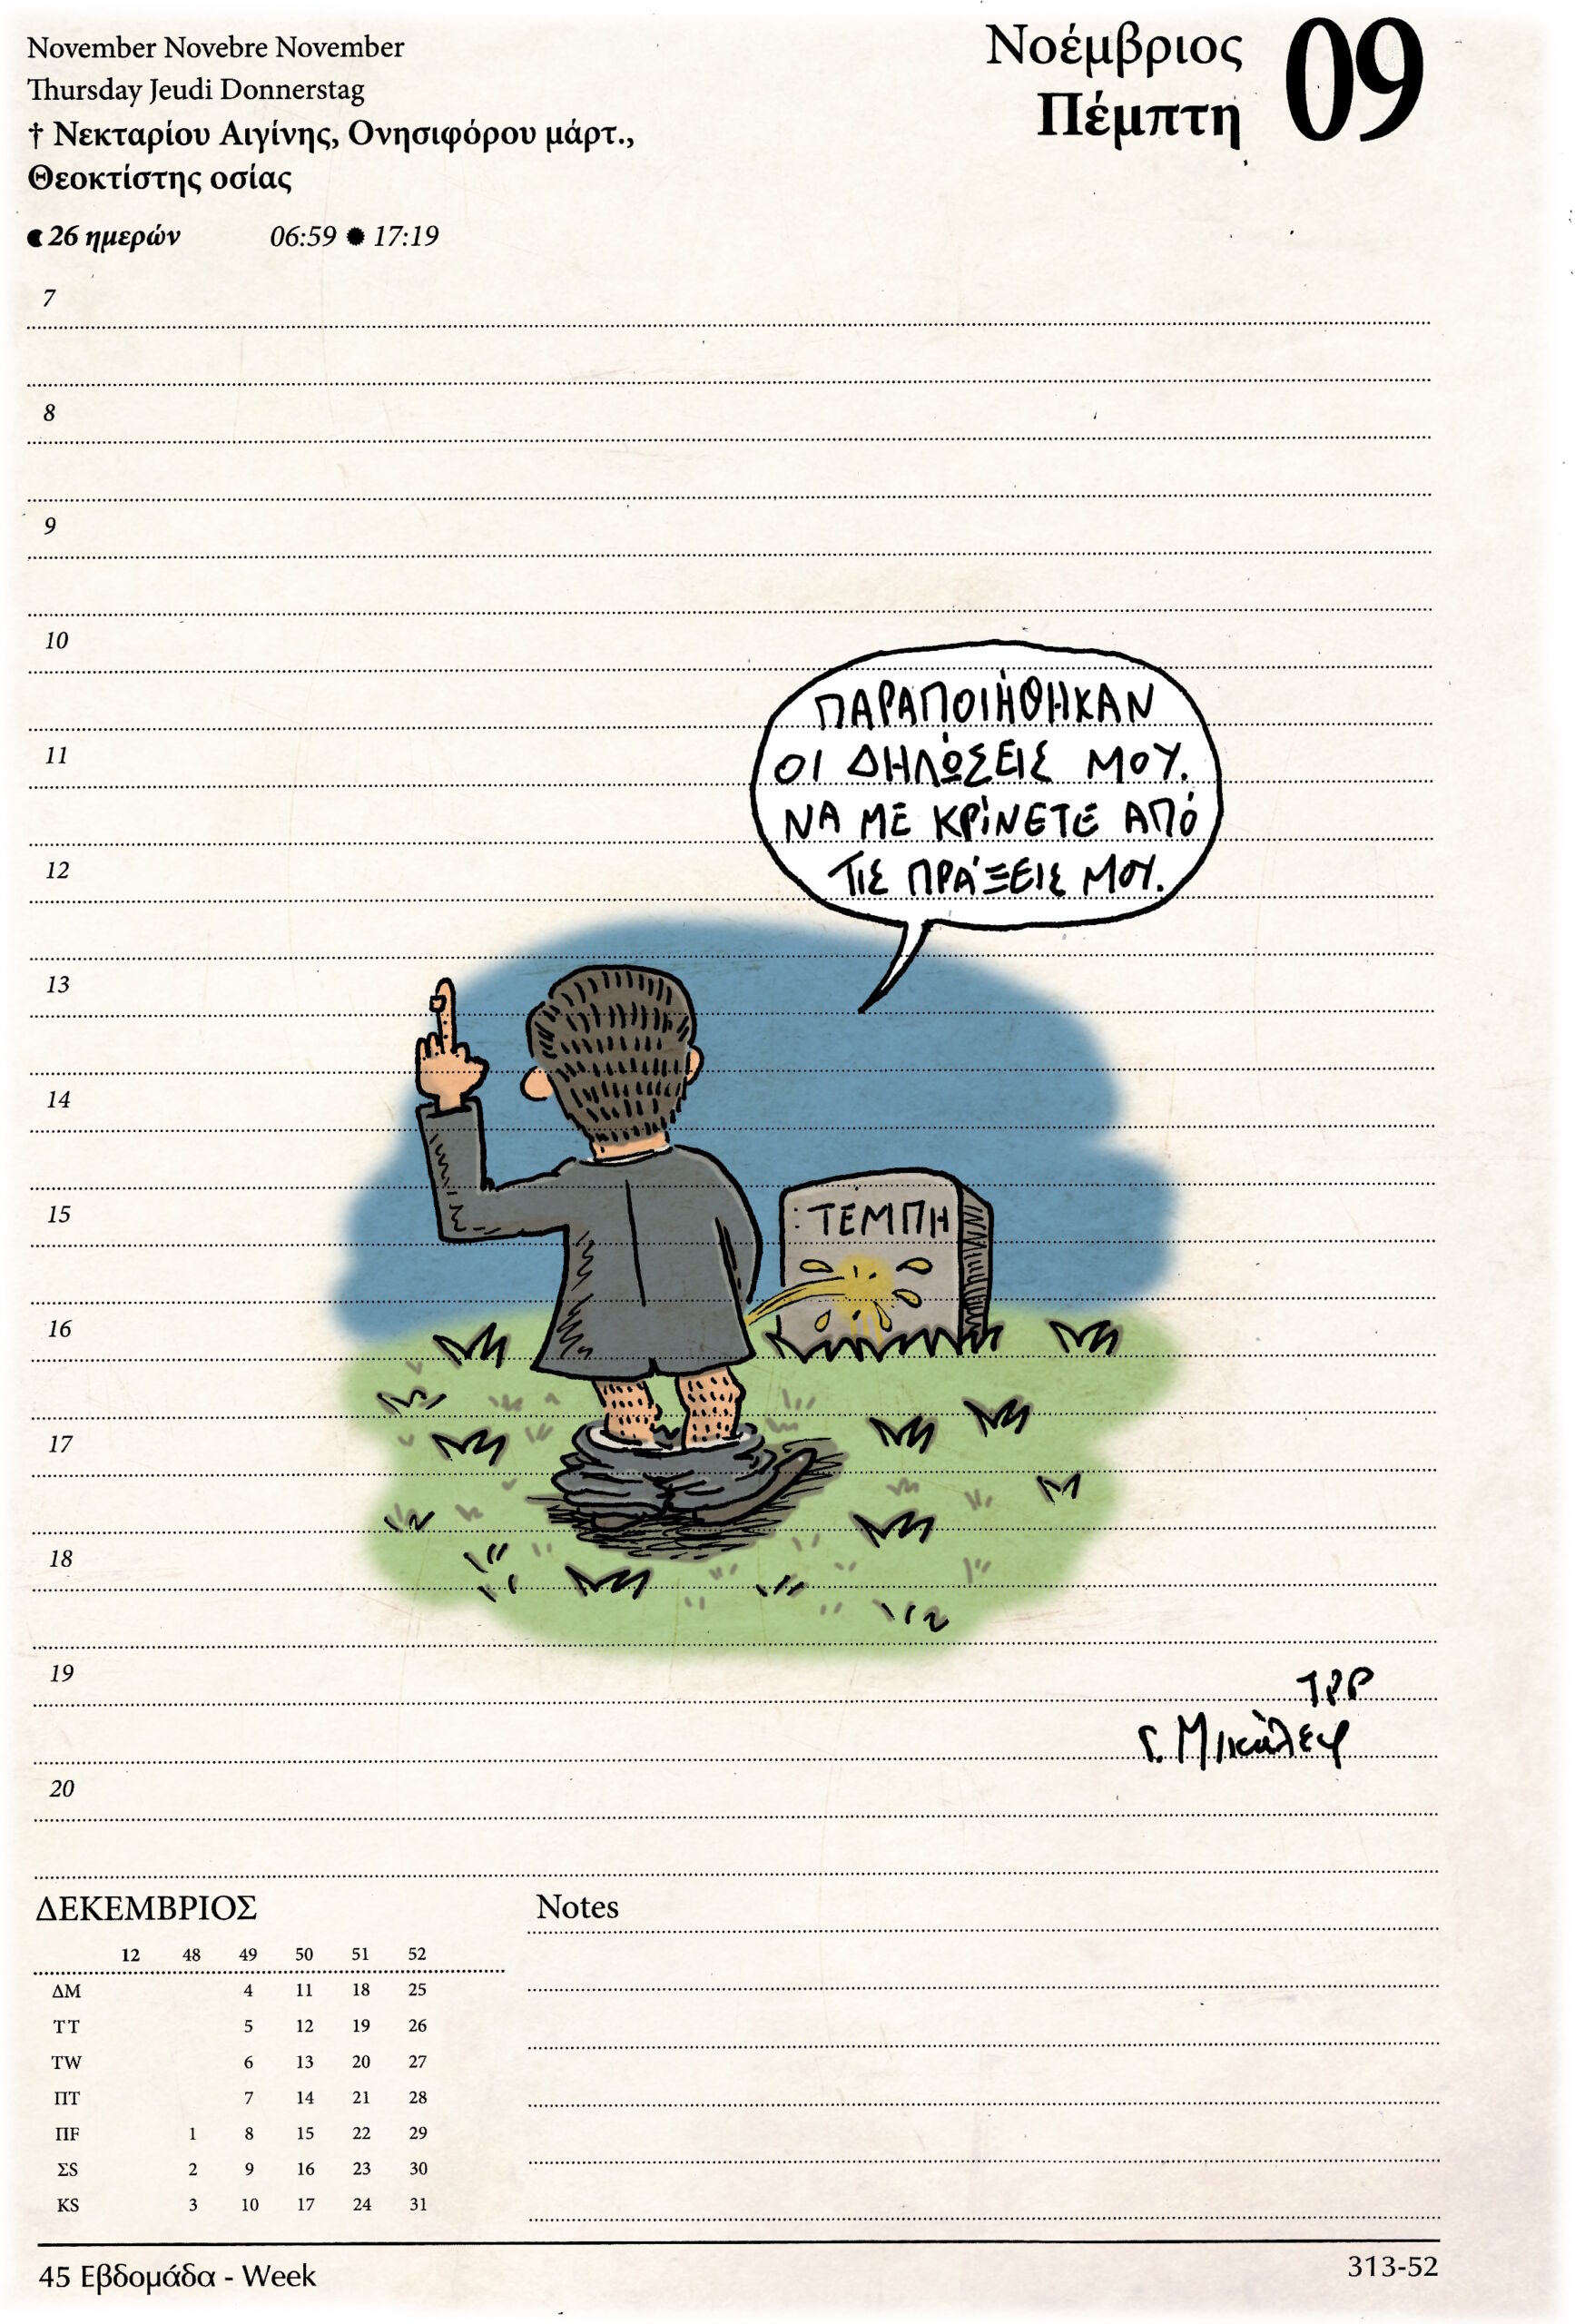 November Novebre November
Thursday Jeudi Donnerstag
† Νεκταρίου Αιγίνης, Ονησιφόρου μάρτ.,
Θεοκτίστης οσίας
26 ημερών 06:59 17:19
Νοέμβριος 09
Πέμπτη
7
8
9
10
ΠΑΡΑΠΟΙΉΘΗΚΑΝ
ΟΙ ΔΗΛΏΣΕΙΣ ΜΟΥ.
ΝΑ ΜΕ ΚΡΊΝΕΤΕ ΑΠΌ
ΤΙΣ ΠΡΆΞΕΙΣ ΜΟΥ.
11
12
13
14
15
ΤΕΜΠΗ
16
17
18
19
20
ΔΕΚΕΜΒΡΙΟΣ
12 48 49 50 51 52
ΔΜ 4 11 18 25
ΤΤ 5 12 19 26
TW 6 13 20 27
ΠΤ 7 14 21 28
ΠF 1 8 15 22 29
ΣS 2 9 16 23 30
KS 3 10 17 24 31
Notes
45 Εβδομάδα - Week
313-52